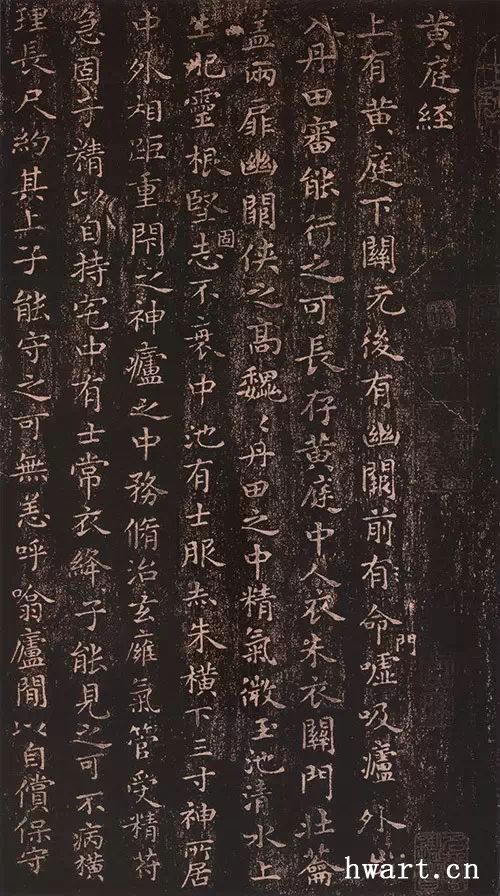 黃庭經
上有黃庭下關元後有幽闕前有命門噓吸廬外出
入丹田審能行之可長存黃庭中人衣朱衣關門壯蘥
蓋兩扉幽闕俠之高巍〻丹田之中精氣微玉池清水上
生肥靈根堅固志不衰中池有士服赤朱橫下三寸神所居
中外相距重閇之神廬之中務脩治玄癰氣管受精苻
急固子精以自持宅中有士常衣絳子能見之可不病橫
理長尺約其上子能守之可無恙呼噏廬間以自償保守
hwart.cn